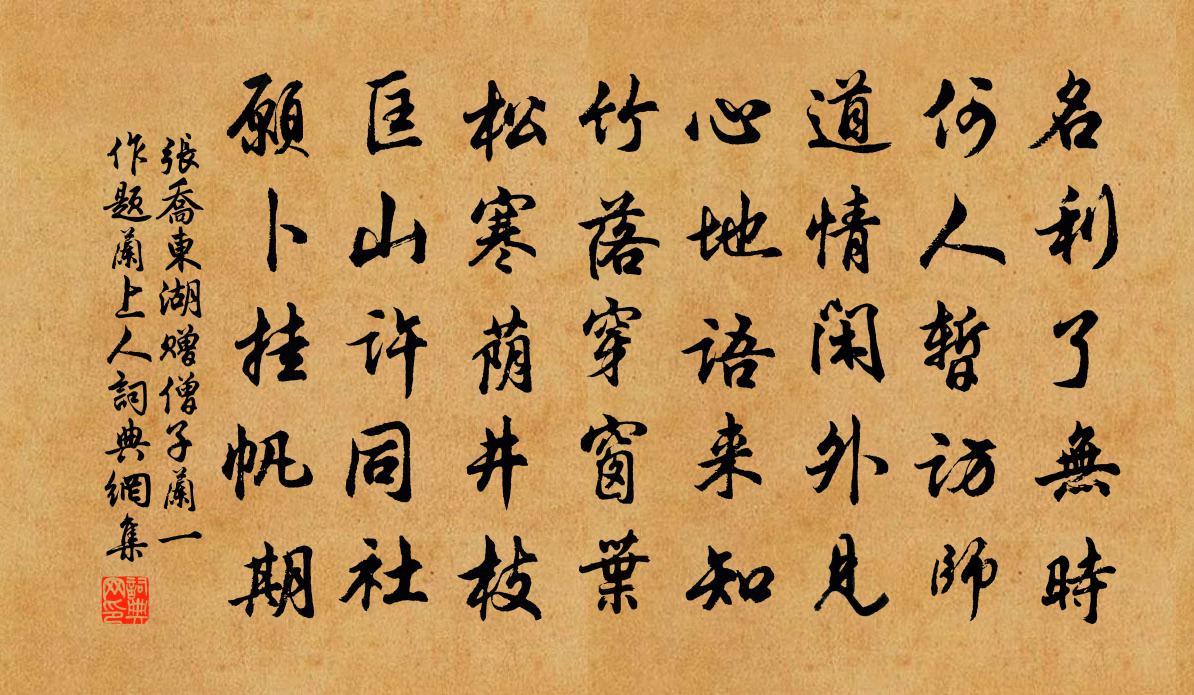 名利了無時
何人暫訪師
道情閑外見
心地語來知
竹落穿窗葉
松寒蔭井枝
匡山許同社
願卜挂帆期
張喬東湖贈僧子蘭一
作題蘭上人詞典網集
詞典网印